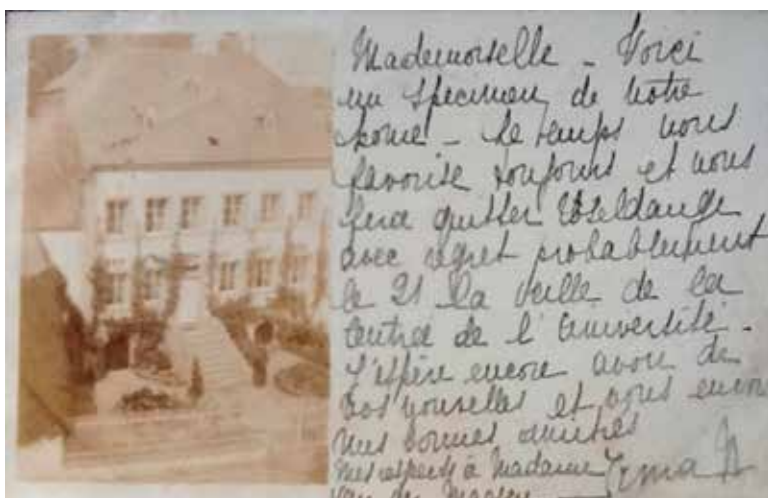 Mademoiselle - Voici
un specimen de notre
home - Le temps nous
favorise toujours et nous
fera quitter Useldange
avec regret probablement
le 21 la veille de la
rentrée de l'université.
J'espère encore avoir de
vos nouvelles et vous envoie
mes bonnes amitiés
Irma
mes respects à Madame